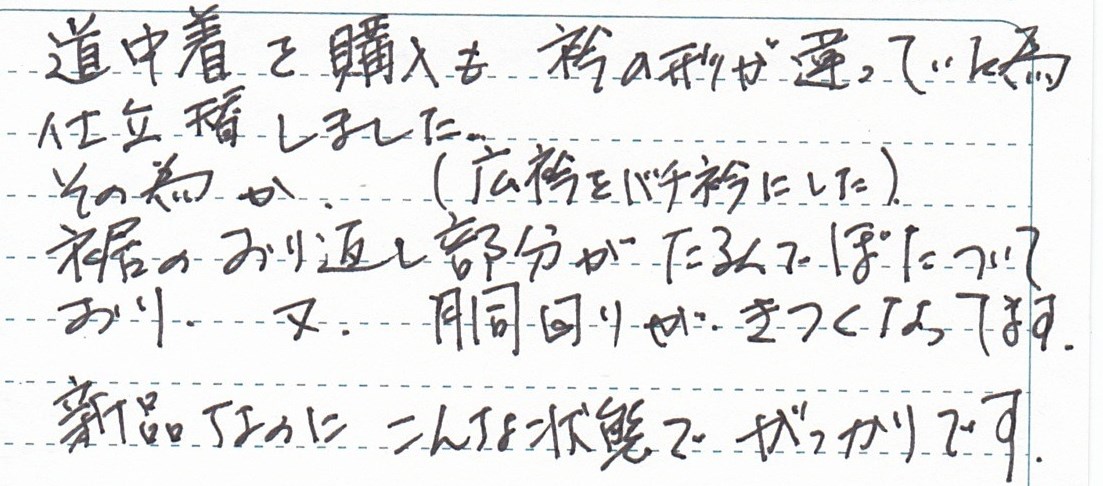 道中着を購入も 衿の形が違っていた為
仕立替しました。
その為か、 (広衿をバチ衿にした)
裾のおり返し部分がたるんでぼたついて
おり、 又、 胴回りが、きつくなってます.
新品なのに こんな状態で がっかりです.